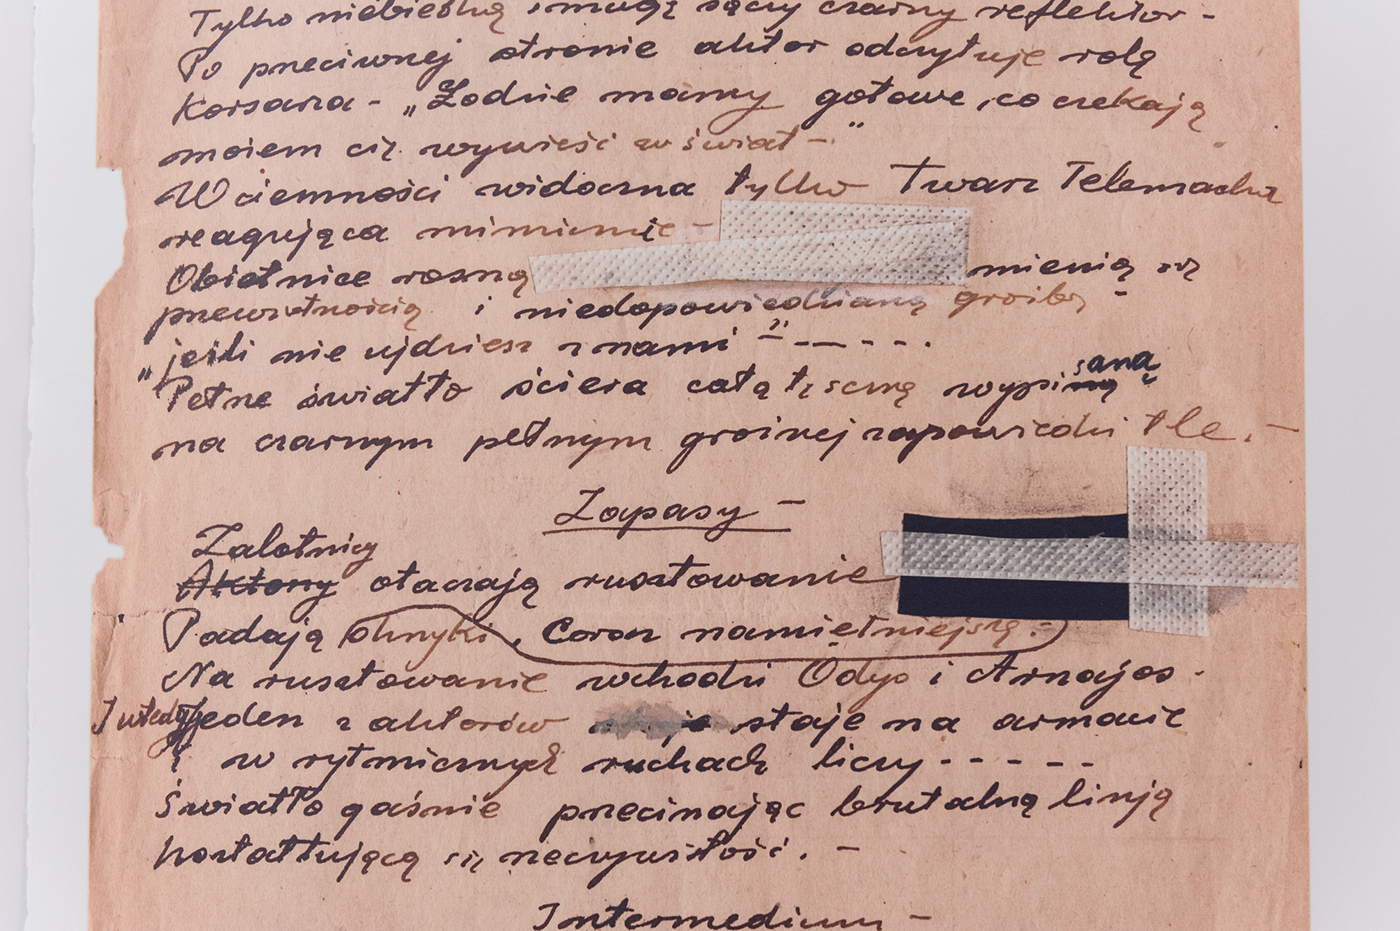 Tylko niebieską smugą sączy czarny reflektor -
Po przeciwnej stronie aktor odczytuje rolę
Korsarza - „Łodzie mamy gotowe, co czekają
moiem cię wywieść w świat - "
W ciemności widoczna tylko Twarz Telemacha
reagująca mimicznie -
Obietnice rosną mienią się
przewrotnością i niedopowiedzianą groźbą
„jeśli nie ujdziesz z nami " - — - - - .
Pełne światło ściera całą tę scenę wypisaną
na czarnym pełnym groźnej zapowiedzi tle. -
Zapasy -
Zalotnicy
Aktorzy otaczają rusztowanie
Padają okrzyki, Coraz namiętniejszą. -
Na rusztowanie wchodzi Odys i Arnajos -
I wtedy jeden z aktorów staje na armacie
i w rytmicznych ruchach liczy - - - - -
Światło gaśnie przecinając brutalną linją
kształtującą się rzeczywistość. -
Intermedium -